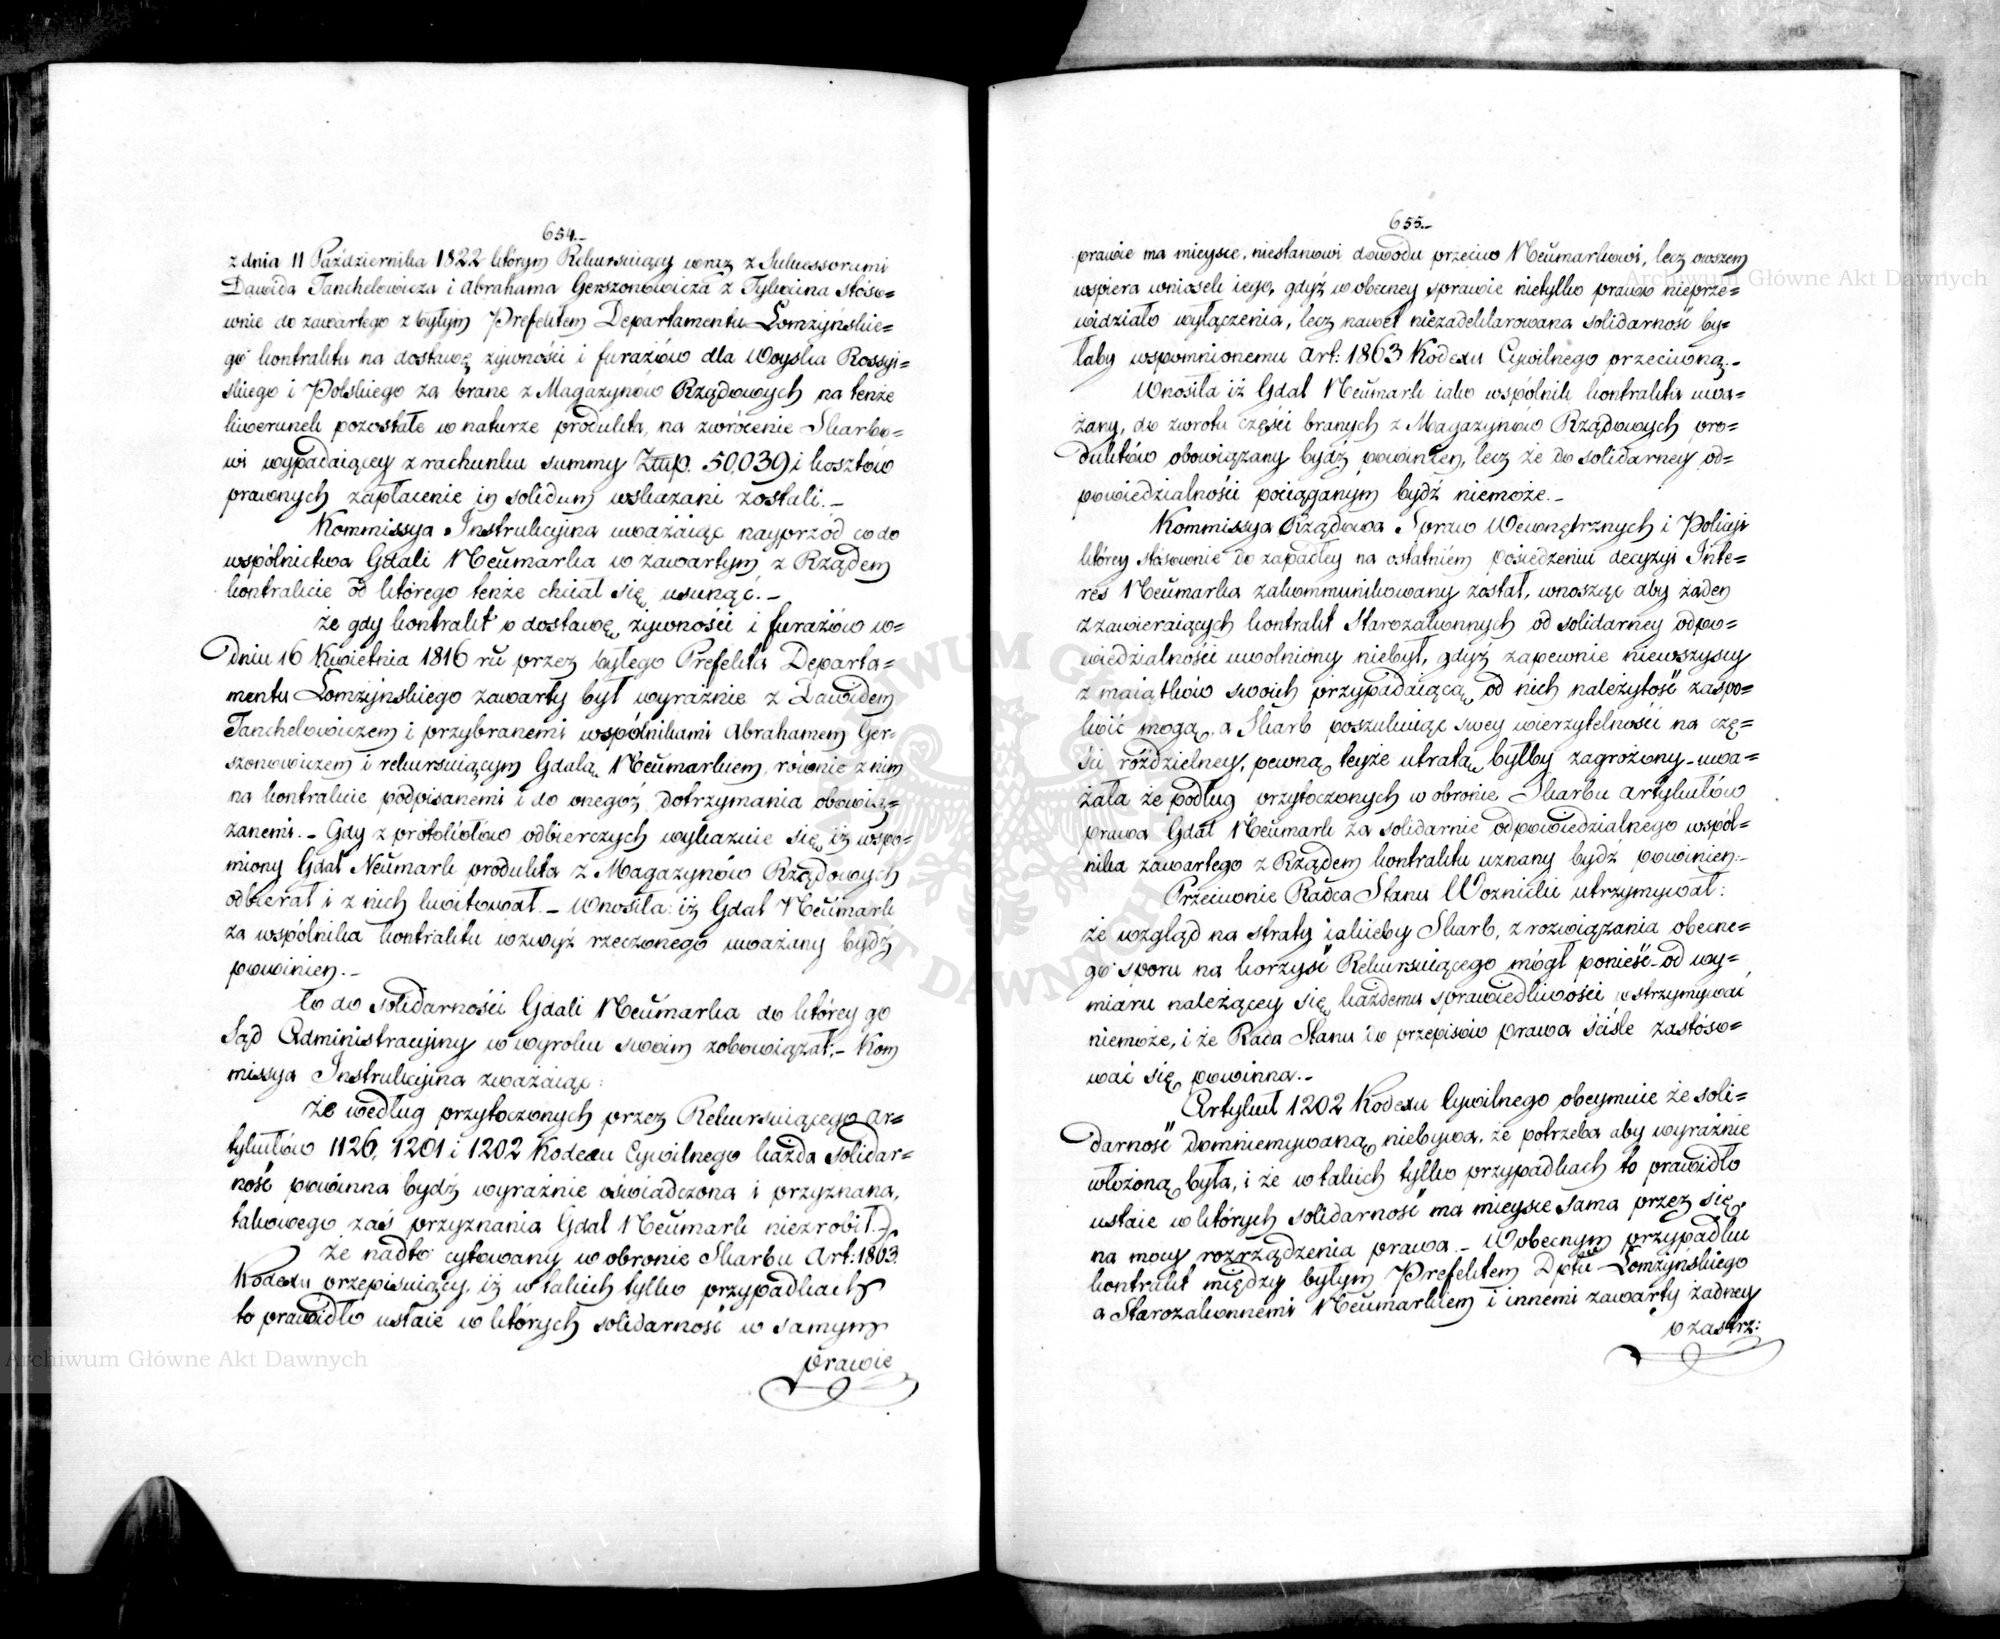 654.-
z dnia 11 Października 1822 którym Rekursuiący wraz z Sukcessorami
Dawida Tanchelowicza i Abrahama Gerszonowicza z Tykocina stóso=
wnie do zawartego z byłym Prefektem Departamentu Łomżyńskie=
go kontraktu na dostawę żywności i furażów dla Woyska Rossyi=
skiego i Polskiego za brane z Magazynów Rządowych na tenże
liwerunek pozostałe w naturze produkta, na zwrócenie Skarbo=
wi wypadaiącey z rachunku summy Złtp. 50,039 i kosztów
prawnych zapłacenie in solidum wskazani zostali. -
Kommissya Instrukcyina uważaiąc nayprzód co do
wspólnictwa Gdali Neümarka w zawartym z Rządem
kontrakcie od którego tenże chciał się usunąć. -
że gdy kontrakt o dostawę żywności i furażów w=
dniu 16 Kwietnia 1816 ru przez byłego Prefekta Departa=
mentu Łomżyńskiego zawarty był wyraźnie z Dawidem
Tanchelowiczem i przybranemi wspólnikami Abrahamem Ger=
szonowiczem i rekursuiącym Gdalą Neümarkiem, równie z nim
na kontrakcie podpisanemi i do onegoż dotrzymania obowią=
zanemi. - Gdy z protokółów odbierczych wykazuie się, iż wspo=
miony Gdal Neümark produkta z Magazynów Rządowych
odbierał i z nich kwitował. - Wnosiła: iż Gdal Neümark
za wspólnika kontraktu wzwyż rzeczonego uważany bydź
powinien. -
Co do solidarności Gdali Neümarka do którey go
Sąd Administracyiny w wyroku swoim zobowiązał; - Kom
missya Instrukcyina zważaiąc:
że według przytoczonych przez Rekursuiącego Ar=
tykułów 1126, 1201 i 1202 Kodexu Cywilnego każda solidar=
ność powinna bydź wyraźnie oświadczona i przyznana,
takowego zaś przyznania Gdal Neümark niezrobił. -
że nadto cytowany w obronie Skarbu Art: 1863.
Kodexu przepisuiący, iż w takich tylko przypadkach
to prawidło ustaie w których solidarność w samym
prawie
655.-
prawie ma mieysce, niestanowi dowodu przeciw Neümarkowi, lecz owszem
wspiera wniosek iego, gdyż w obecney sprawie nietylko prawo nieprze=
widziało wyłączenia, lecz nawet niezadeklarowana solidarność by=
łaby wspomnionemu Art: 1863 Kodexu Cywilnego przeciwną. -
Wnosiła iż Gdal Neümark iako wspólnik kontraktu uwa=
żany, do zwrotu części branych z Magazynów Rządowych pro=
duktów obowiązany bydź powinien, lecz że do solidarney od=
powiedzialności pociąganym bydź niemoże. -
Kommissya Rządowa Spraw Wewnętrznych i Policyi
którey stósownie do zapadłey na ostatniem posiedzeniu decyzyi Inte=
res Neümarka zakommunikowany został, wnosząc aby żaden
z zawieraiących kontrakt Starozakonnych od solidarney odpo=
wiedzialności uwolniony niebył, gdyż zapewnie niewszyscy
z maiątków swoich przypadaiącą od nich należytość zaspo=
koić mogą, a Skarb poszukuiąc swey wierzytelności na czę=
ści rózdzielney, pewną teyże utratą byłby zagrożony - uwa=
żała że podług przytoczonych w obronie Skarbu artykułów
prawa Gdal Neümark za solidarnie odpowiedzialnego wspól=
nika zawartego z Rządem kontraktu uznany bydź powinien: -
Przeciwnie Radca Stanu Woznicki utrzymywał:
że wzgląd na straty iakieby Skarb, z rozwiązania obecne=
go sporu na korzyść Rekursuiącego mógł ponieść - od wy=
miaru należącey się każdemu sprawiedliwości wstrzymywać
niemoże, i że Rada Stanu do przepisów prawa ściśle zastósо=
wać się powinna. -
Artykuł 1202 Kodexu Cywilnego obeymuie że soli=
darność domniemywaną niebywa, że potrzeba aby wyraźnie
włożoną była, i że w takich tylko przypadkach to prawidło
ustaie w których solidarność ma mieysce sama przez się,
na mocy rozrządzenia prawa. - W obecnym przypadku
kontrakt między byłym Prefektem Dptu Łomżyńskiego
a Starozakonnemi Neümarkiem i innemi zawarty żadney
o zastrz:
Archiwum Główne Akt Dawnych
Archiwum Główne Akt Dawnych
ARCHIWUM GŁÓWNE AKT DAWNYCH